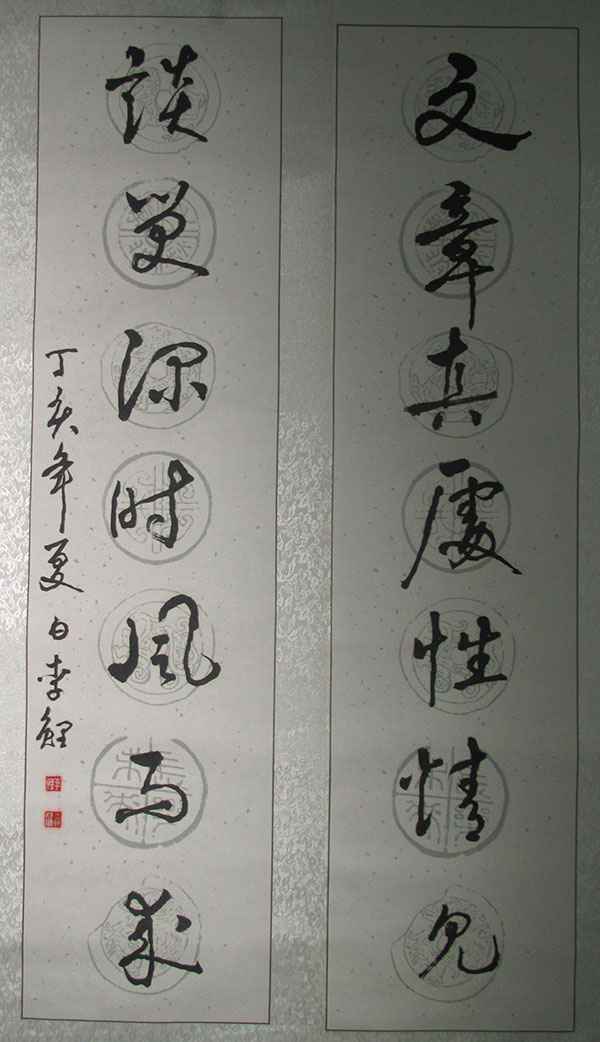 文章真處性情見
談笑深时風雨來
丁亥年夏白李鯉